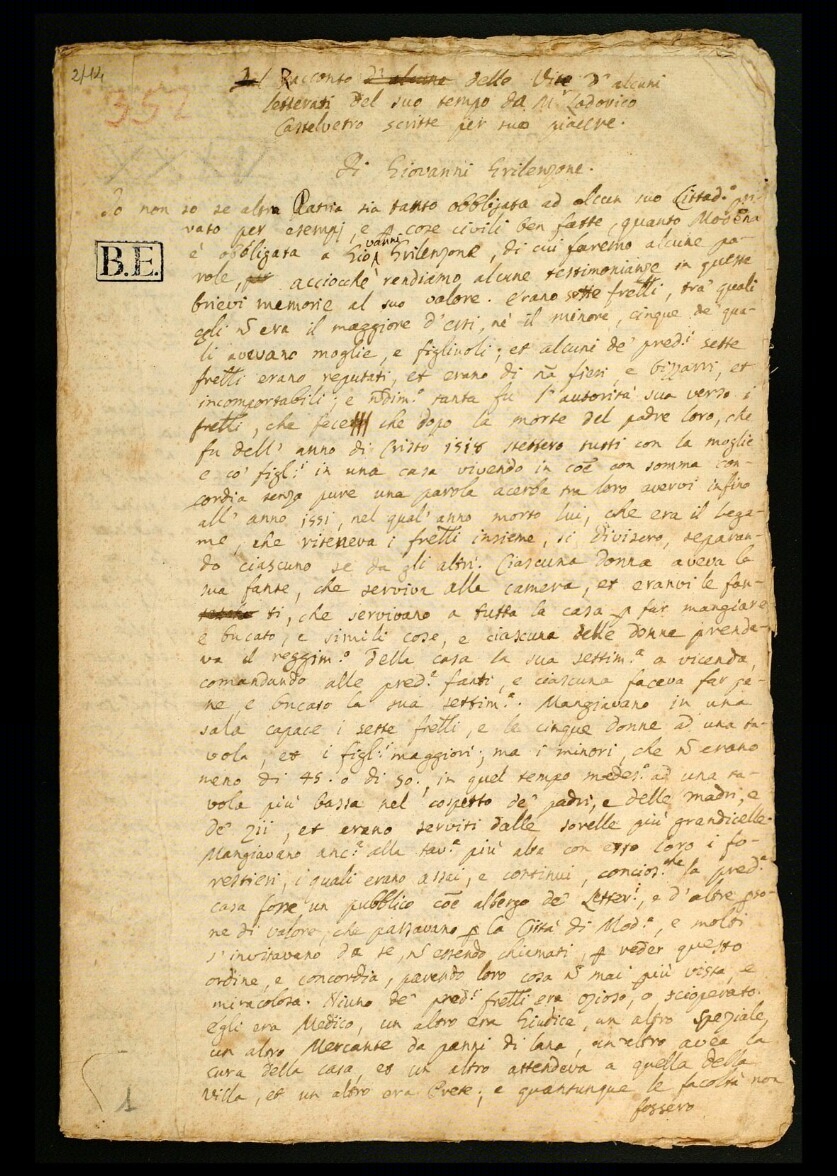 2/14
352
Il Racconto di alcune delle Vite d' alcuni
letterati del suo tempo da M. Lodovico
Castelvetro scritte per suo piacere.
Di Giovanni Grilenzone.
Io non so se altra Patria sia tanto obbligata ad alcun suo Cittad.º pri-
vato per esempj, e p cose civili ben fatte, quanto Modena
è obbligata a Giovanni Grilenzone, di cui faremo alcune pa-
B.E.
role, per acciocchè rendiamo alcune testimonianze in queste
brievi memorie al suo valore. Erano sette frelli, tra' quali
egli nõ era il maggiore d'essi, nè il minore, cinque de' qua-
li avevano moglie, e figliuoli; et alcuni de' pred.i sette
frelli erano reputati, et erano di nã fieri, e bizzarri, et
incomportabili; e nõdim.º tanta fu l' autorità sua verso i
frelli, che fece che dopo la morte del padre loro, che
fu dell' anno di Cristo 1518 stettero tutti con la moglie
e co' figl.i in una casa vivendo in coẽ con somma con-
cordia senza pure una parola acerba tra loro avervi infino
all' anno 1551, nel qual' anno morto lui, che era il lega-
me, che riteneva i frelli insieme, si divisero, separan-
do ciascuno se da gli altri. Ciascuna Donna aveva la
sua fante, che serviva alla camera, et eranvi le fan-
ti, che servivano a tutta la casa p far mangiare
e bucato, e simili cose, e ciascuna delle Donne prende-
va il reggim.º della casa la sua settim.a a vicenda,
comandando alle pred.e fanti, e ciascuna faceva far pa-
ne, e bucato la sua settim.a. Mangiavano in una
sala capace i sette frelli, e le cinque Donne ad una ta-
vola, et i figl.i maggiori; ma i minori, che nõ erano
meno di 45. o di 50. in quel tempo medes.º ad una ta-
vola più bassa nel cospetto de' padri, e delle madri, e
de' zii, et erano serviti dalle sorelle più grandicelle.
Mangiavano anc.a alla tav.a più alta con esso loro i fo-
restieri, i quali erano assai, e continui, concios.che la pred.a
casa fosse un pubblico coẽ albergo de' Letter.i, e d'altre pso-
ne di valore, che passavano p la Città di Mod.a, e molti
s' invitavano da se, nõ essendo chiamati, p veder questo
ordine, e concordia, parendo loro cosa nõ mai più vista, e
miracolosa. Niuno de' pred.i frelli era ozioso, o scioperato.
Egli era Medico, un altro era Giudice, un altro Speziale,
un altro Mercante da panni di lana, un'altro avea la
cura della casa, et un altro attendeva a quella della
Villa, et un altro era Prete; e quantunque le facoltà non
fossero
1